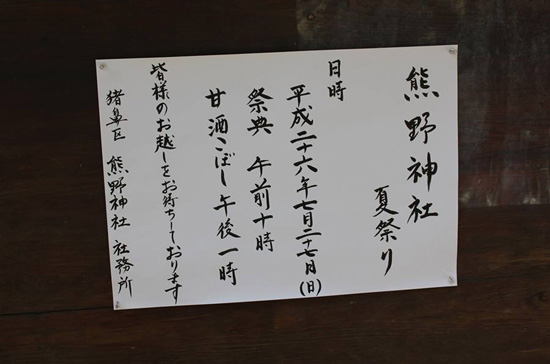 熊野神社
夏祭り
日時
平成二十六年七月二十七日(日)
祭典 午前十時
甘酒こぼし午後一時
皆様のお越しをお待ちしております
猪鼻区 熊野神社 社務所